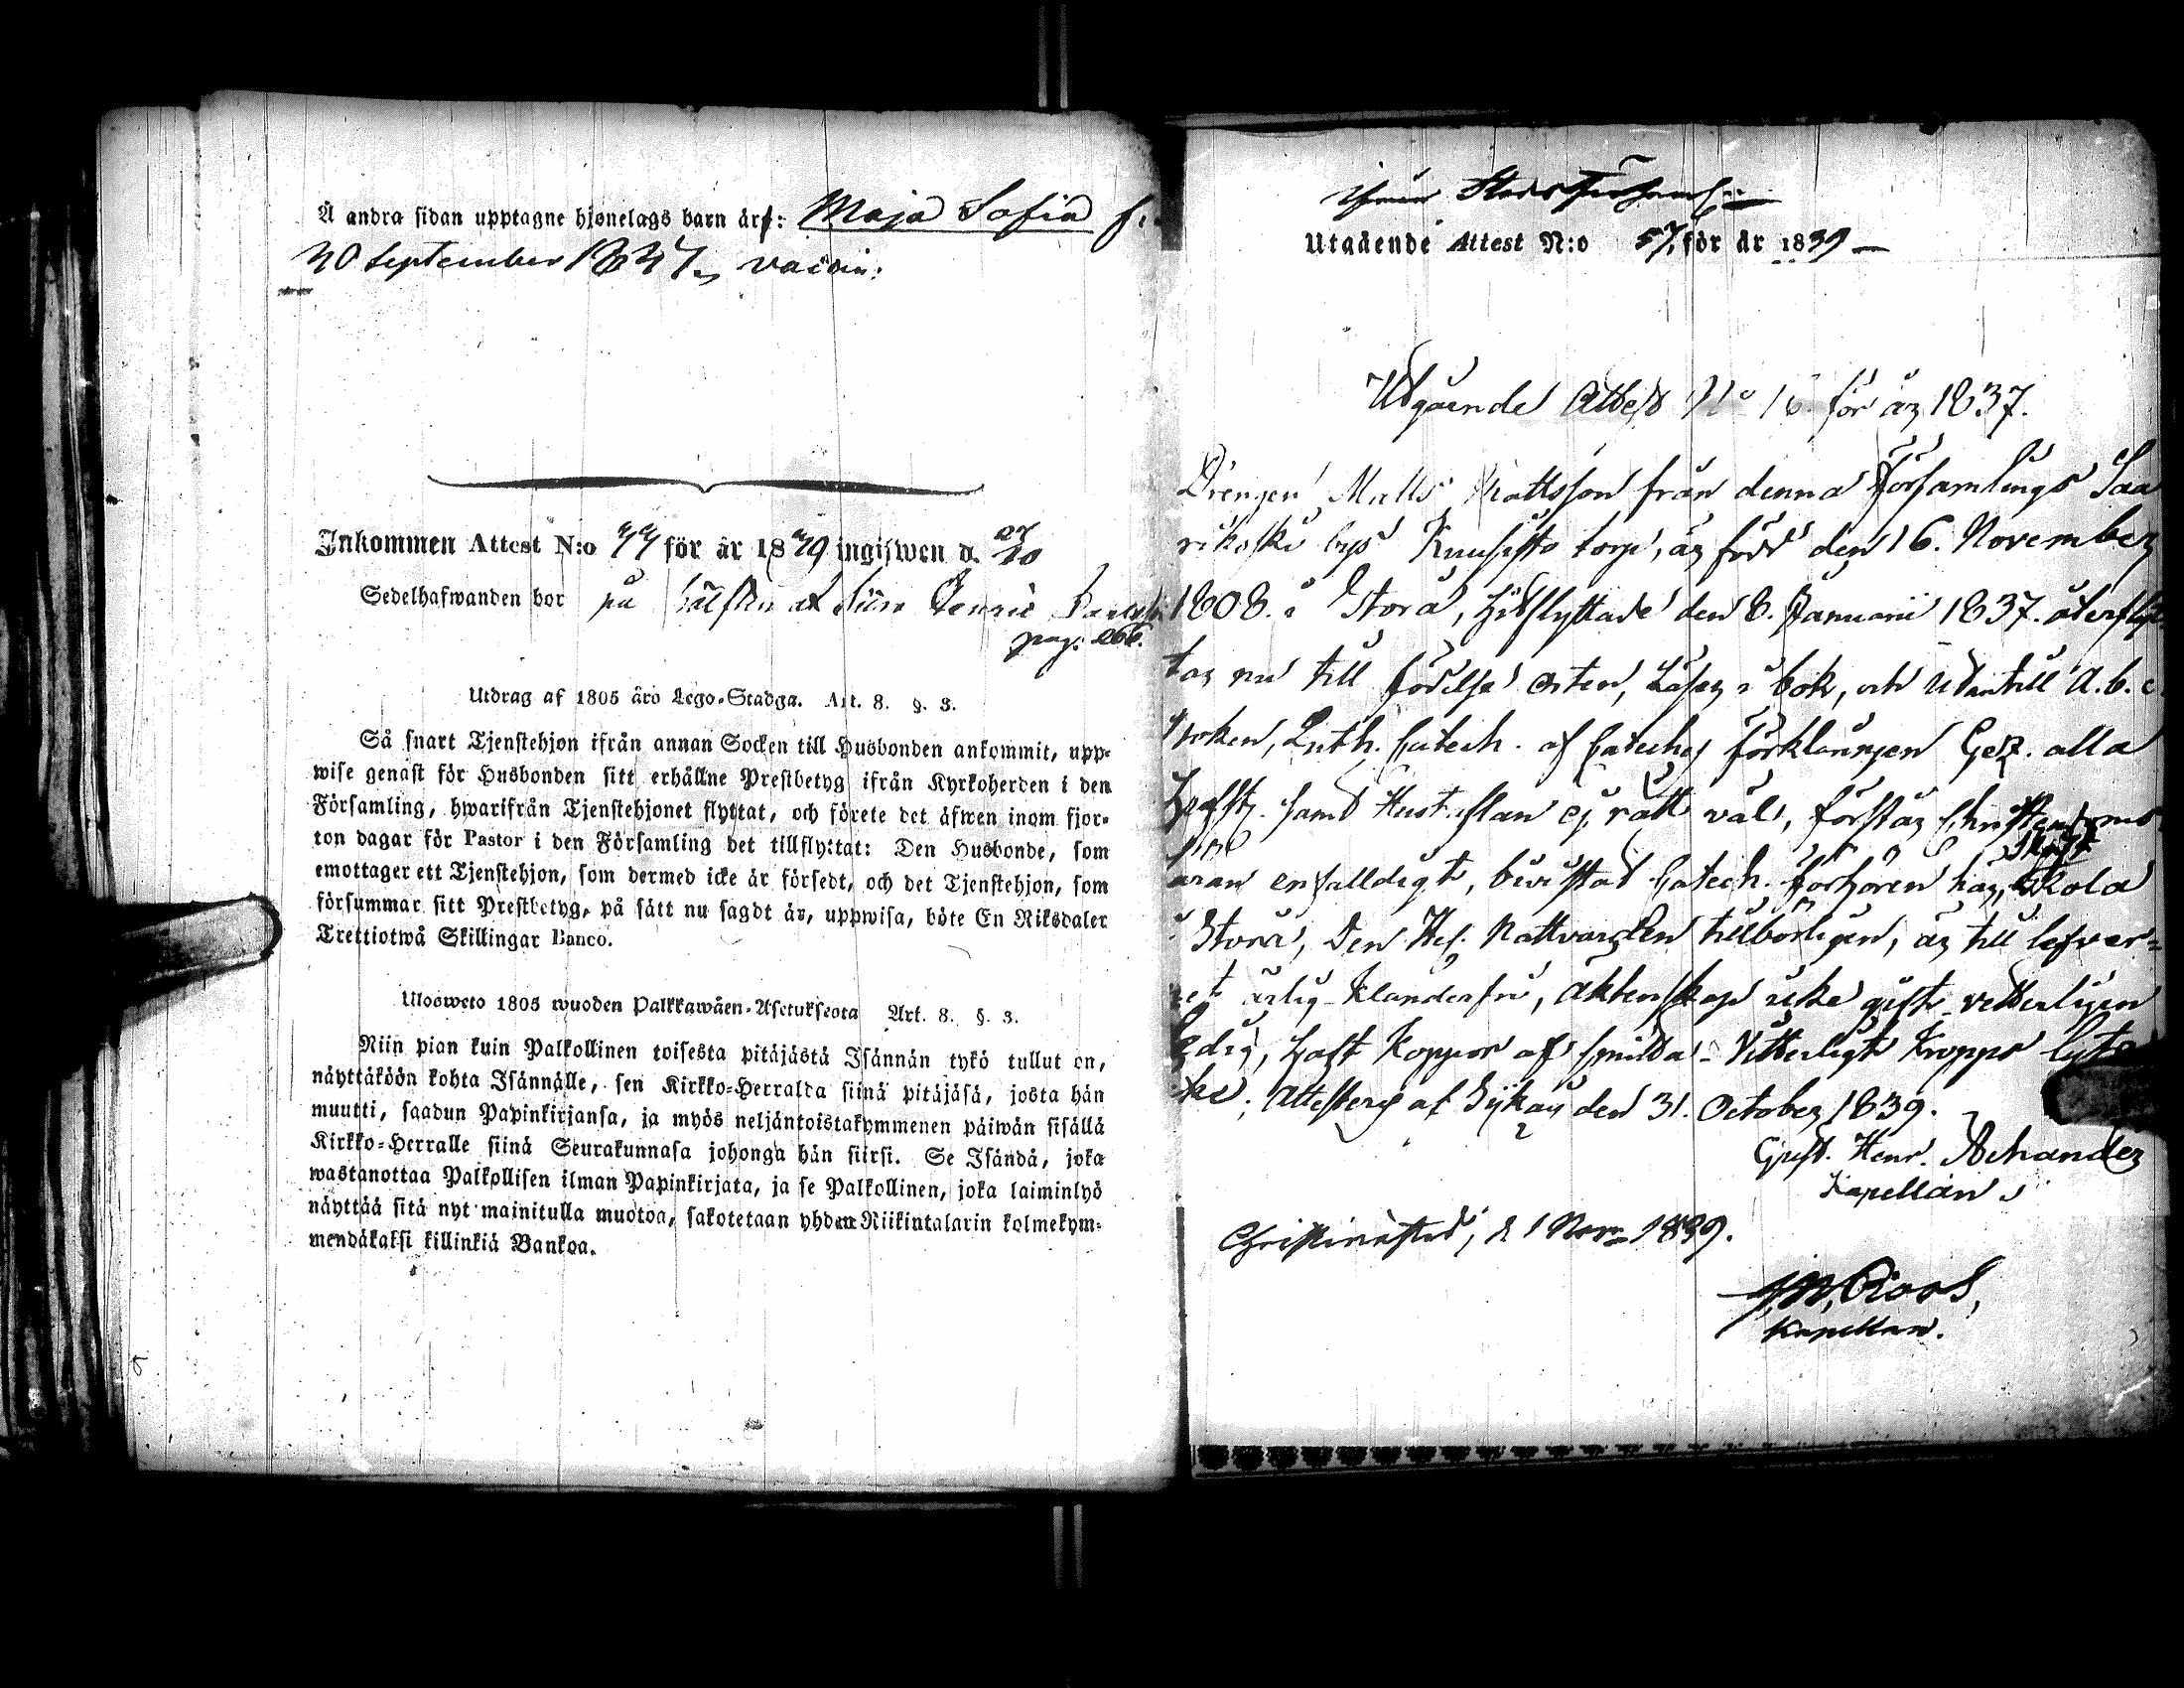 Å andra sidan upptagne hjonelags barn är: Maja Sofia f.
30 September 1837, vaccin:
Inkommen Attest N:o 44 för år 1839 ingifwen d. 27/10
Sedelhafwanden bor på hälften af
pag: 266.
Utdrag af 1805 års Lego-Stadga. Art. 8. §. 3.
Så snart Tjenstehjon ifrån annan Socken till Husbonden ankommit, upp-
wise genast för Husbonden sitt erhållne Prestbetyg ifrån Kyrkoherden i den
Församling, hwarifrån Tjenstehjonet flyttat, och förete det äfwen inom fjor-
ton dagar för Pastor i den Församling det tillflyttat: Den Husbonde, som
emottager ett Tjenstehjon, som dermed icke är försedt, och det Tjenstehjon, som
försummar sitt Prestbetyg, på sätt nu sagdt är, uppwisa, böte En Riksdaler
Trettiotwå Skillingar Banco.
Ulosweto 1805 wuoden Palkkawäen-Asetuksesta Art. 8. §. 3.
Niin pian kuin Palkollinen toisesta pitäjästä Isännän tykö tullut on,
näyttäköön kohta Isännälle, sen Kirkko-Herralda siinä pitäjäsä, josta hän
muutti, saadun Papinkirjansa, ja myös neljäntoistakymmenen päiwän sisällä
Kirkko-Herralle siinä Seurakunnasa johonga hän siirsi. Se Isändä, joka
wastanottaa Palkollisen ilman Papinkirjata, ja se Palkollinen, joka laiminlyö
näyttää sitä nyt mainitulla muotoa, sakotetaan yhden Riikintalarin kolmekym-
mendäkaksi killinkiä Bankoa.
Utgående Attest N:o 57, för år 1839
Utgående Attest No 16 för år 1837.
Drengen Matts Mattsson från denna Församlings Saa
rikoski bys Kuusisto torp, är född den 16. November
1808. i Storå, hitflyttade den 8. Januarii 1837. återflyt
tar nu till födelse orten, Läser i bok, och utantill A.b.c.
boken, Luth. Catech. af Catechs förklaringen Gez. alla
samt Hust. flan ej rätt väl, förstår Christendoms
läran enfalldigt, bivistat Catech. förhören här,
i Storå, Den Hel. Nattvarden tillbörligen, är till lefver=
net ärlig Klanderfri, äktenskap icke gift vetterligen
Ledig, haft Koppor af smitta. Vetterligt Kropps lyte
icke, Attesterg af Sijkais den 31. October 1839.
Gust. Henr. Achander
Kapellan
Christinæstad, d 1 Nov. 1839.
J.W. Roos,
Kapellan.